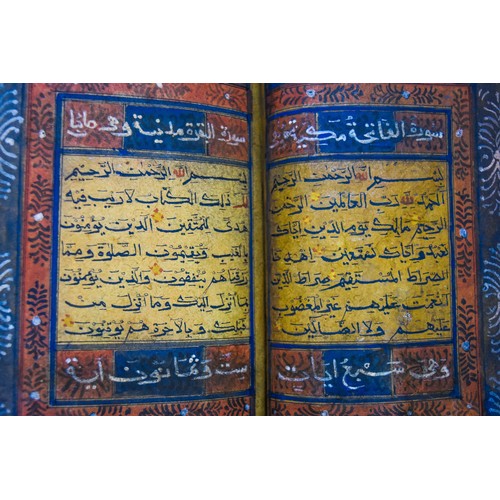 سورة الفاتحة مكية
بسم الله الرحمن الرحيم
الحمد لله رب العالمين الرحمن
الرحيم مالك يوم الدين إياك
نعبد وإياك نستعين اهدنا
الصراط المستقيم صراط الذين
أنعمت عليهم غير المغضوب
عليهم ولا الضالين
وهي سبع آيات
سورة البقرة مدنية وهي مايتا
بسم الله الرحمن الرحيم
الم ذلك الكتاب لا ريب فيه
هدى للمتقين الذين يؤمنون
بالغيب ويقيمون الصلوة ومما
رزقناهم ينفقون والذين يؤمنون
بما أنزل إليك وما أنزل من
قبلك وبالآخرة هم يوقنون
ست وثمانون آية